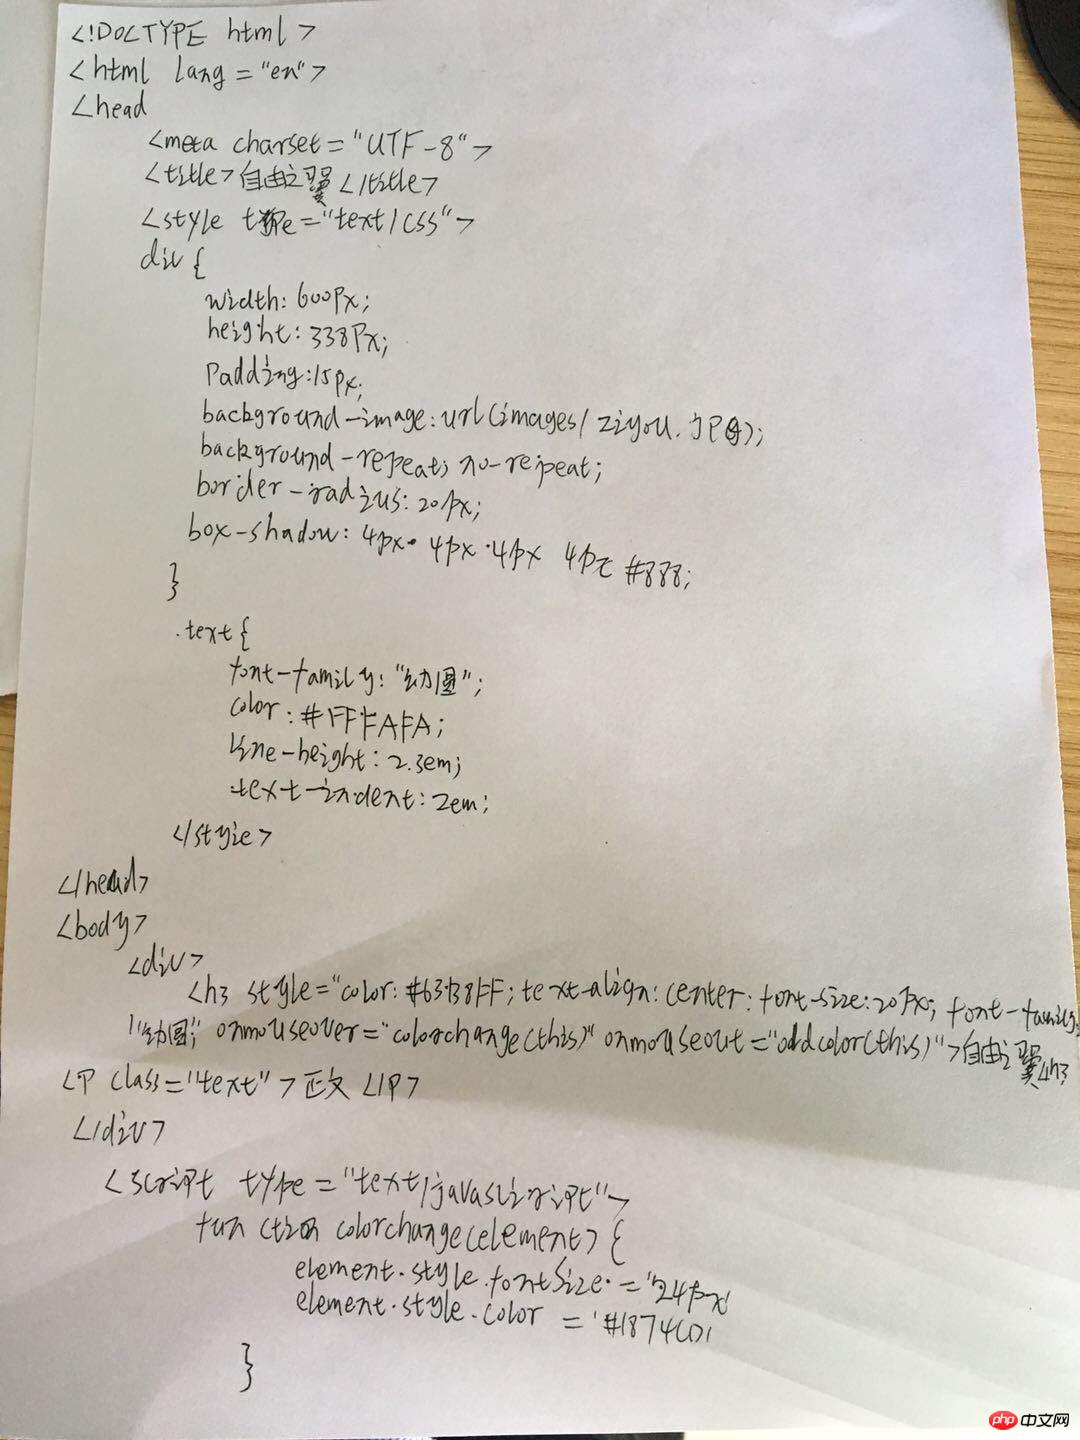 <!DOCTYPE html>
<html lang="en">
<head
<meta charset="UTF-8">
<title>自由之翼</title>
<style type="text/css">
div {
width: 600px;
height: 338px;
padding:15px;
background-image: url(images/ziyou.JPG);
background-repeat: no-repeat;
border-radius: 20px;
box-shadow: 4px 4px 4px 4px #888;
}
.text {
font-family: "幼圆";
color: #FFFAFA;
line-height: 2.3em;
text-indent: 2em;
</style>
</head>
<body>
<div>
<h3 style="color: #63B8FF; text-align: center: font-size: 20px; font-family:
"幼圆; onmouseover="colorchange(this)" onmouseout="oddcolor(this)">自由之翼</h3
<P class="text">正文</P>
</div>
<script type="text/javascript">
function colorchange(element) {
element.style.fontSize = '24px'
element.style.color = '#1874CD'
}
php 中文网